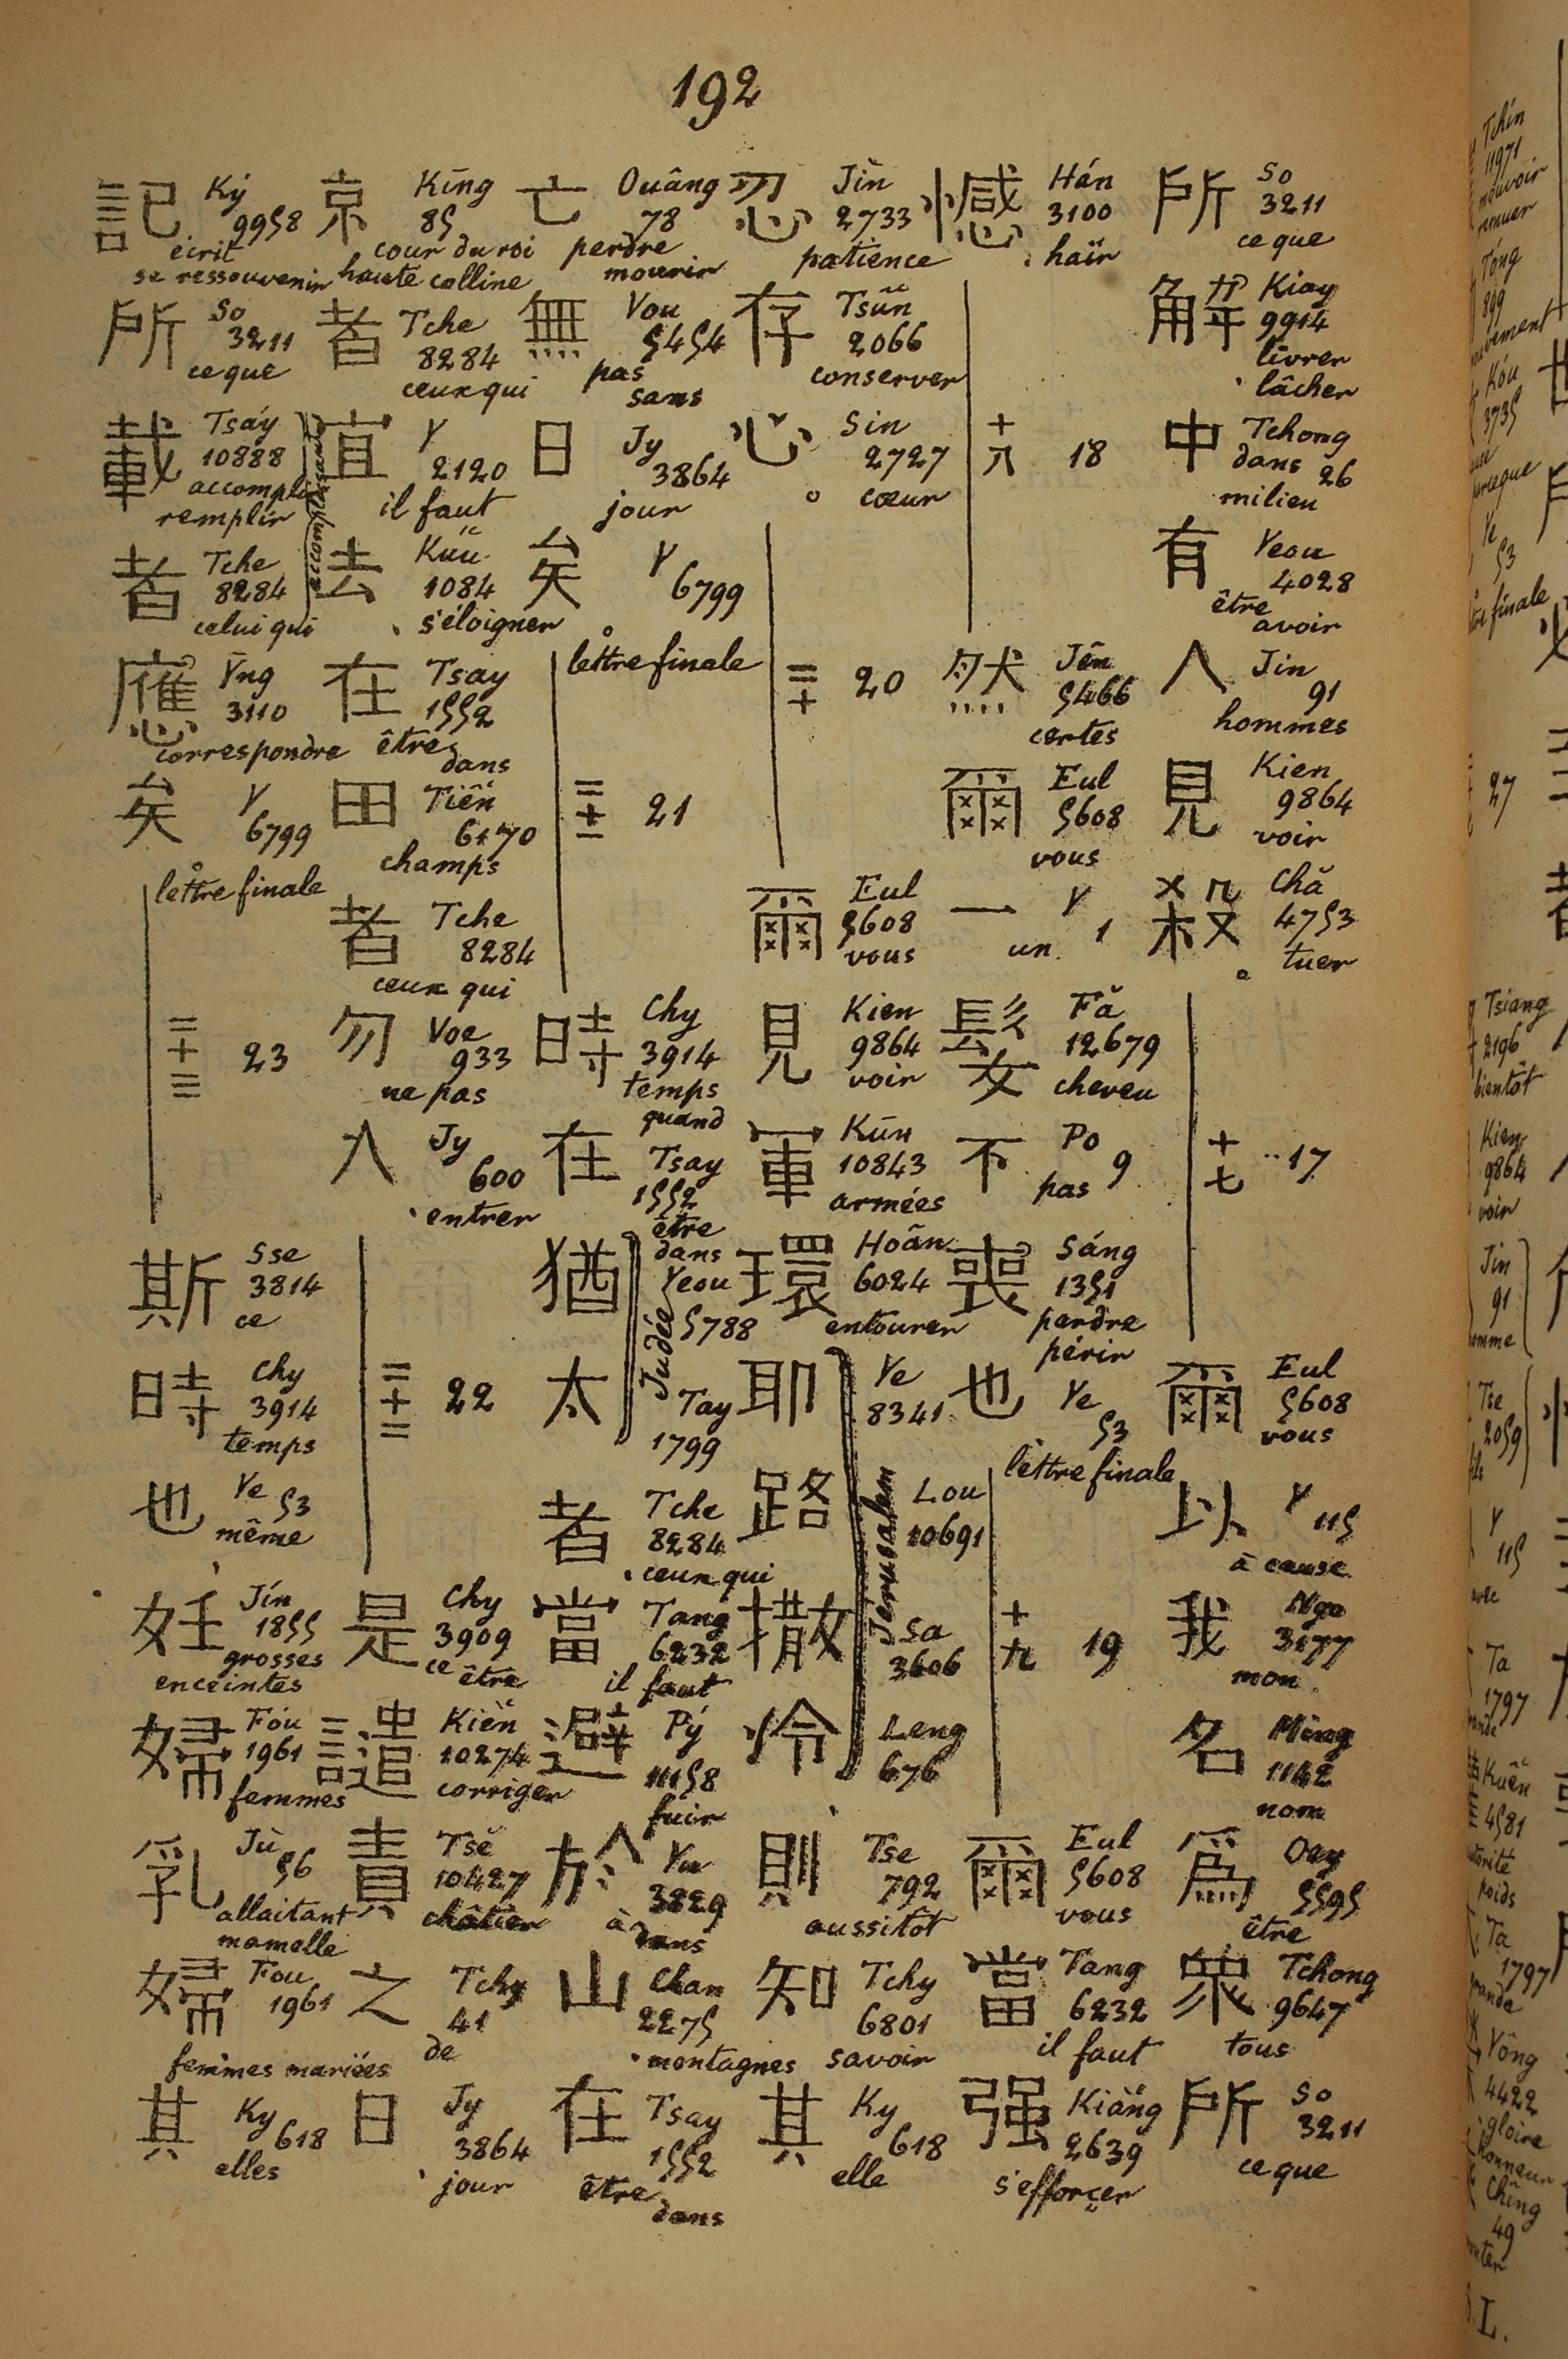 192
所 So 3211 ce que
解 Kiay 9914 livrer lâcher
中 Tchong dans 26 milieu
有 Yeou 4028 être avoir
人 Jin 91 hommes
見 Kien 9864 voir
殺 Chă 4753 tuer
十七 17
爾 Eul 5608 vous
以 Y 115 à cause
我 Ngo 3177 mon
名 Mîng 1142 nom
爲 Oey 5595 être
衆 Tchong 9647 tous
所 So 3211 ce que
憾 Hán 3100 haïr
十八 18
然 Jên 5466 certes
爾 Eul 5608 vous
一 Y 1 un
髮 Fă 12679 cheveu
不 Po 9 pas
喪 Sáng 1351 perdre périr
也 Ye 53 lettre finale
十九 19
爾 Eul 5608 vous
當 Tang 6232 il faut
强 Kiàng 2639 s'efforcer
忍 Jìn 2733 patience
存 Tsûn 2066 conserver
心 Sin 2727 cœur
二十 20
爾 Eul 5608 vous
見 Kien 9864 voir
軍 Kūn 10843 armées
環 Hoân 6024 entourer
耶 Ye 8341
路 Lou 10691
撒 Sa 3606
冷 Leng 676
Jerusalem
則 Tse 792 aussitôt
知 Tchy 6801 savoir
其 Ky 618 elle
亡 Ouâng 78 perdre mourir
無 Vou 5454 pas sans
日 Jy 3864 jour
矣 Y 6799 lettre finale
二十一 21
時 Chy 3914 temps quand
在 Tsay 1552 être dans
猶 Yeou 5788
太 Tay 1799
Judée
者 Tche 8284 ceux qui
當 Tang 6232 il faut
避 Pý 11158 fuir
於 Yu 3829 à dans
山 Chan 2275 montagnes
在 Tsay 1552 être dans
京 Kīng 85 cour du roi haute colline
者 Tche 8284 ceux qui
宜 Y 2120 il faut
去 Kúu 1084 s'éloigner
在 Tsay 1552 être dans
田 Tiên 6170 champs
者 Tche 8284 ceux qui
勿 Voe 933 ne pas
入 Jy 600 entrer
二十二 22
是 Chy 3909 ce être
譴 Kiẻn 10274 corriger
責 Tsĕ 10427 châtier
之 Tchy 41 de
日 Jy 3864 jour
記 Ký 9958 écrit se ressouvenir
所 So 3211 ce que
載 Tsáy 10888 accomplir remplir
者 Tche 8284 celui qui
應 Yng 3110 correspondre
矣 Y 6799 lettre finale
二十三 23
斯 Sse 3814 ce
時 Chy 3914 temps
也 Ye 53 même
妊 Jín 1855 grosses enceintes
婦 Fóu 1961 femmes
乳 Jù 56 allaitant mamelle
婦 Fou 1961 femmes mariées
其 Ky 618 elles